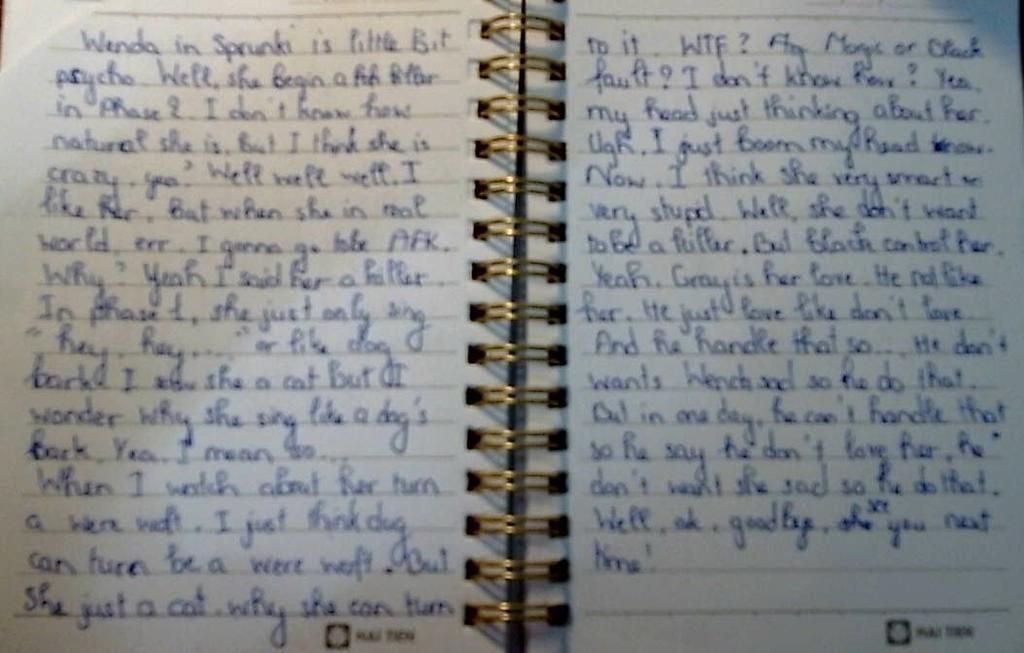 Wenda in Sprunki is little Bit
psycho. Well, she begin a killer
in Phase 2. I don't know how
natural she is. But I think she is
crazy, yea? Well well well. I
like her. But when she in real
world, err. I gonna go to be AFK.
Why? Yeah I said her a killer.
In phase 1, she just only sing
"hey, hey...." or like dog
bark! I saw she a cat But I
wonder why she sing like a dog's
bark. Yea. I mean so...
When I watch about her turn
a were woft. I just think dog
can turn be a were woft. But
She just a cat. why she can turn
HAI TIEN
to it. WTF? Magic or Black
fault? I don't know how? Yea.
my head just thinking about her.
Ugh. I just boom my head know.
Now. I think she very smart or
very stupid. Well, she don't want
to be a killer. But Black control her.
Yeah. Gray is her love. He not like
her. He just love like don't love
And he handle that so... He don't
wants Wenda sad so he do that.
But in one day, he can't handle that
so he say he don't love her, he
don't want she sad so he do that.
Well, ok, goodbye, see you next
time!
HAI TIEN